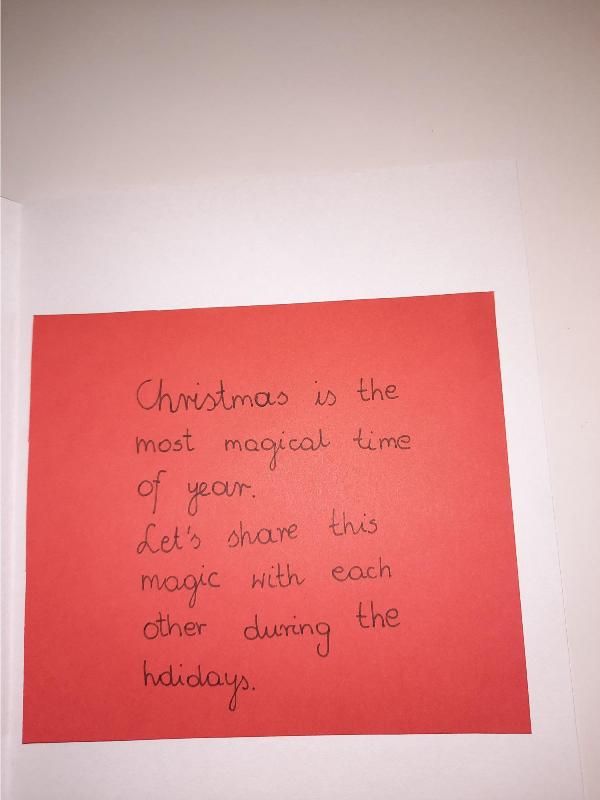 Christmas is the
most magical time
of year.
Let's share this
magic with each
other during the
holidays.